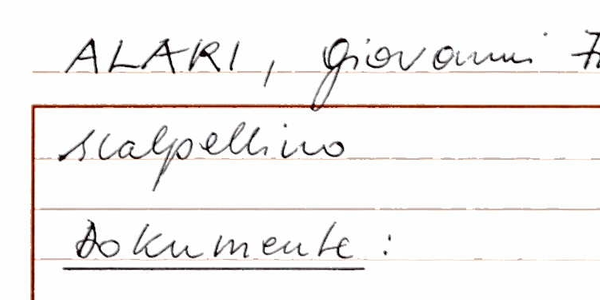 ALARI, Giovanni
scalpellino
Dokumente: